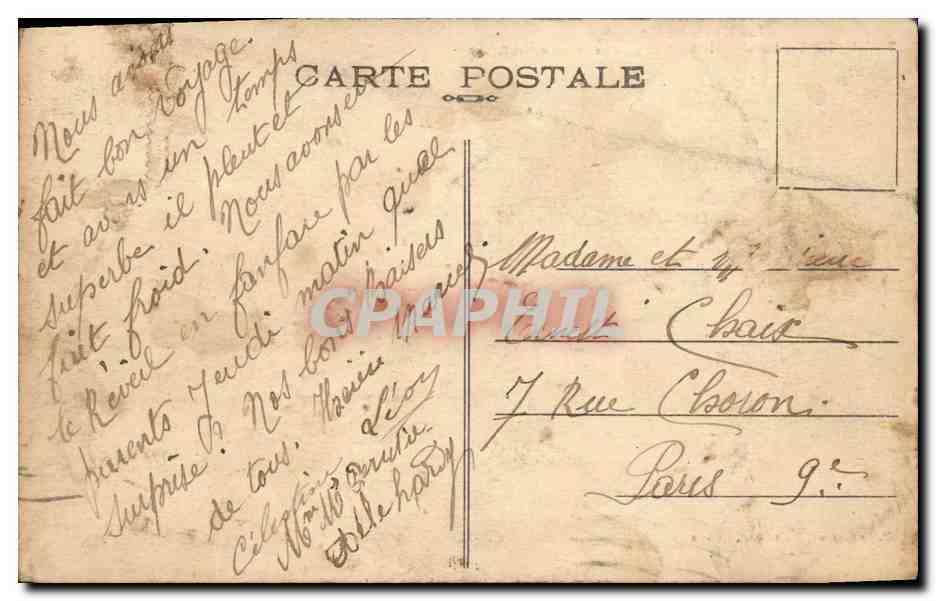 CARTE POSTALE
Nous avons
fait bon voyage.
et avons un temps
superbe il pleut et
fait froid. Nous avons eu
le Réveil en fanfare par les
parents Jeudi matin quel
surprise. Nos bons baisers
de tous.
Célestine Léon
Mme
Madame et
Ernest Chaix
7 Rue Choron.
Paris 9e
CPAPHIL